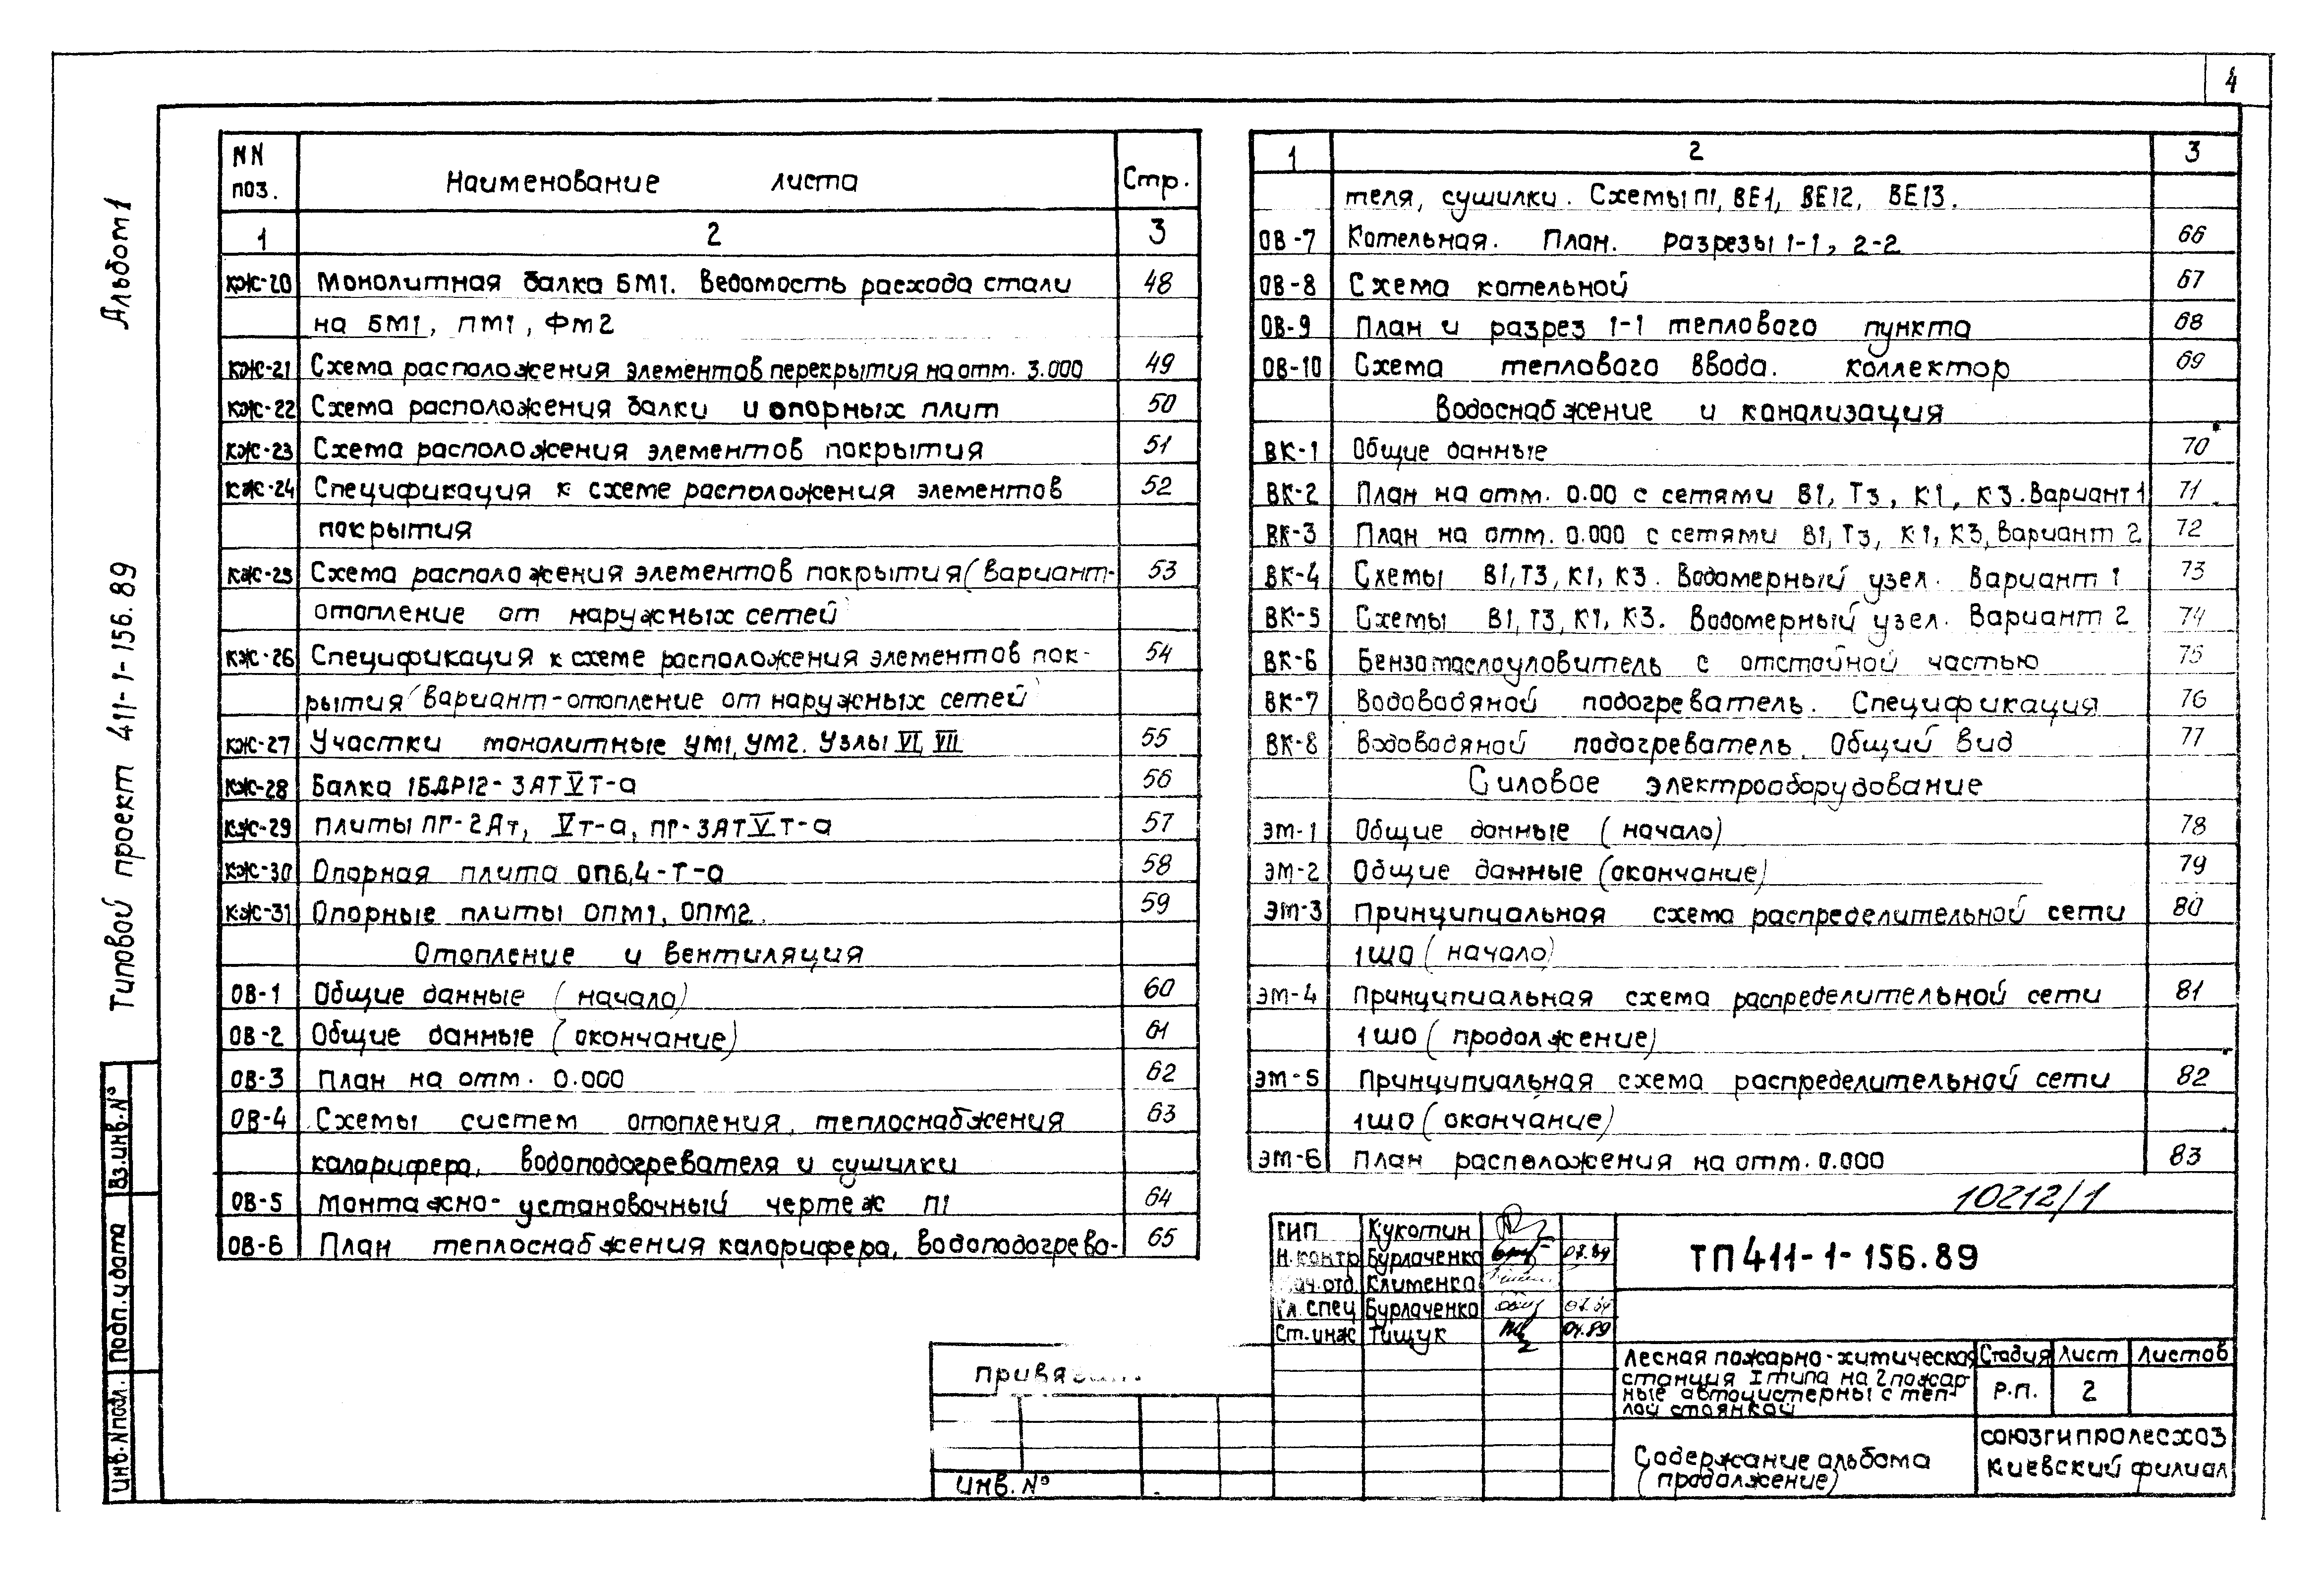 4
Альбом 1
Типовой проект 411-1-156.89
Вз.инв.№
Подп.и дата
Инв.№подл.
NN поз. Наименование листа Стр.
1 2 3
КЖ-20 Монолитная балка БМ1. Ведомость расхода стали 48
на БМ1, ПМ1, ФМ2
КЖ-21 Схема расположения элементов перекрытия на отм. 3.000 49
КЖ-22 Схема расположения балки и опорных плит 50
КЖ-23 Схема расположения элементов покрытия 51
КЖ-24 Спецификация к схеме расположения элементов 52
покрытия
КЖ-25 Схема расположения элементов покрытия (вариант- 53
отопление от наружных сетей)
КЖ-26 Спецификация к схеме расположения элементов пок- 54
рытия (вариант-отопление от наружных сетей)
КЖ-27 Участки монолитные УМ1, УМ2. Узлы VI, VII 55
КЖ-28 Балка 1БДР12-3АТVТ-а 56
КЖ-29 Плиты ПГ-2Ат, VТ-а, ПГ-3АТVТ-а 57
КЖ-30 Опорная плита ОП6,4-Т-а 58
КЖ-31 Опорные плиты ОПМ1, ОПМ2. 59
Отопление и вентиляция
ОВ-1 Общие данные (начало) 60
ОВ-2 Общие данные (окончание) 61
ОВ-3 План на отм. 0.000 62
ОВ-4 Схемы систем отопления, теплоснабжения 63
калорифера, водоподогревателя и сушилки
ОВ-5 Монтажно-установочный чертеж П1 64
ОВ-6 План теплоснабжения калорифера, водоподогрева- 65
1 2 3
теля, сушилки. Схемы П1, ВЕ1, ВЕ12, ВЕ13.
ОВ-7 Котельная. План. Разрезы 1-1, 2-2 66
ОВ-8 Схема котельной 67
ОВ-9 План и разрез 1-1 теплового пункта 68
ОВ-10 Схема теплового ввода. Коллектор 69
Водоснабжение и канализация
ВК-1 Общие данные 70
ВК-2 План на отм. 0.00 с сетями В1, Т3, К1, К3. Вариант 1 71
ВК-3 План на отм. 0.000 с сетями В1, Т3, К1, К3, Вариант 2 72
ВК-4 Схемы В1, Т3, К1, К3. Водомерный узел. Вариант 1 73
ВК-5 Схемы В1, Т3, К1, К3. Водомерный узел. Вариант 2 74
ВК-6 Бензомаслоуловитель с отстойной частью 75
ВК-7 Водоводяной подогреватель. Спецификация 76
ВК-8 Водоводяной подогреватель. Общий вид 77
Силовое электрооборудование
ЭМ-1 Общие данные (начало) 78
ЭМ-2 Общие данные (окончание) 79
ЭМ-3 Принципиальная схема распределительной сети 80
1ШО (начало)
ЭМ-4 Принципиальная схема распределительной сети 81
1ШО (продолжение)
ЭМ-5 Принципиальная схема распределительной сети 82
1ШО (окончание)
ЭМ-6 План расположения на отм. 0.000 83
10212/1
ГИП Кукотин
Н.контр Бурлаченко 07.89
Нач.отд. Клименко
Гл.спец Бурлаченко
Ст.инж Тищук 04.89
ТП 411-1-156.89
Лесная пожарно-химическая
станция I типа на 2 пожар-
ные автоцистерны с теп-
лой стоянкой
Стадия Лист Листов
Р.П. 2
Содержание альбома
(продолжение)
Союзгипролесхоз
Киевский филиал
Инв.№